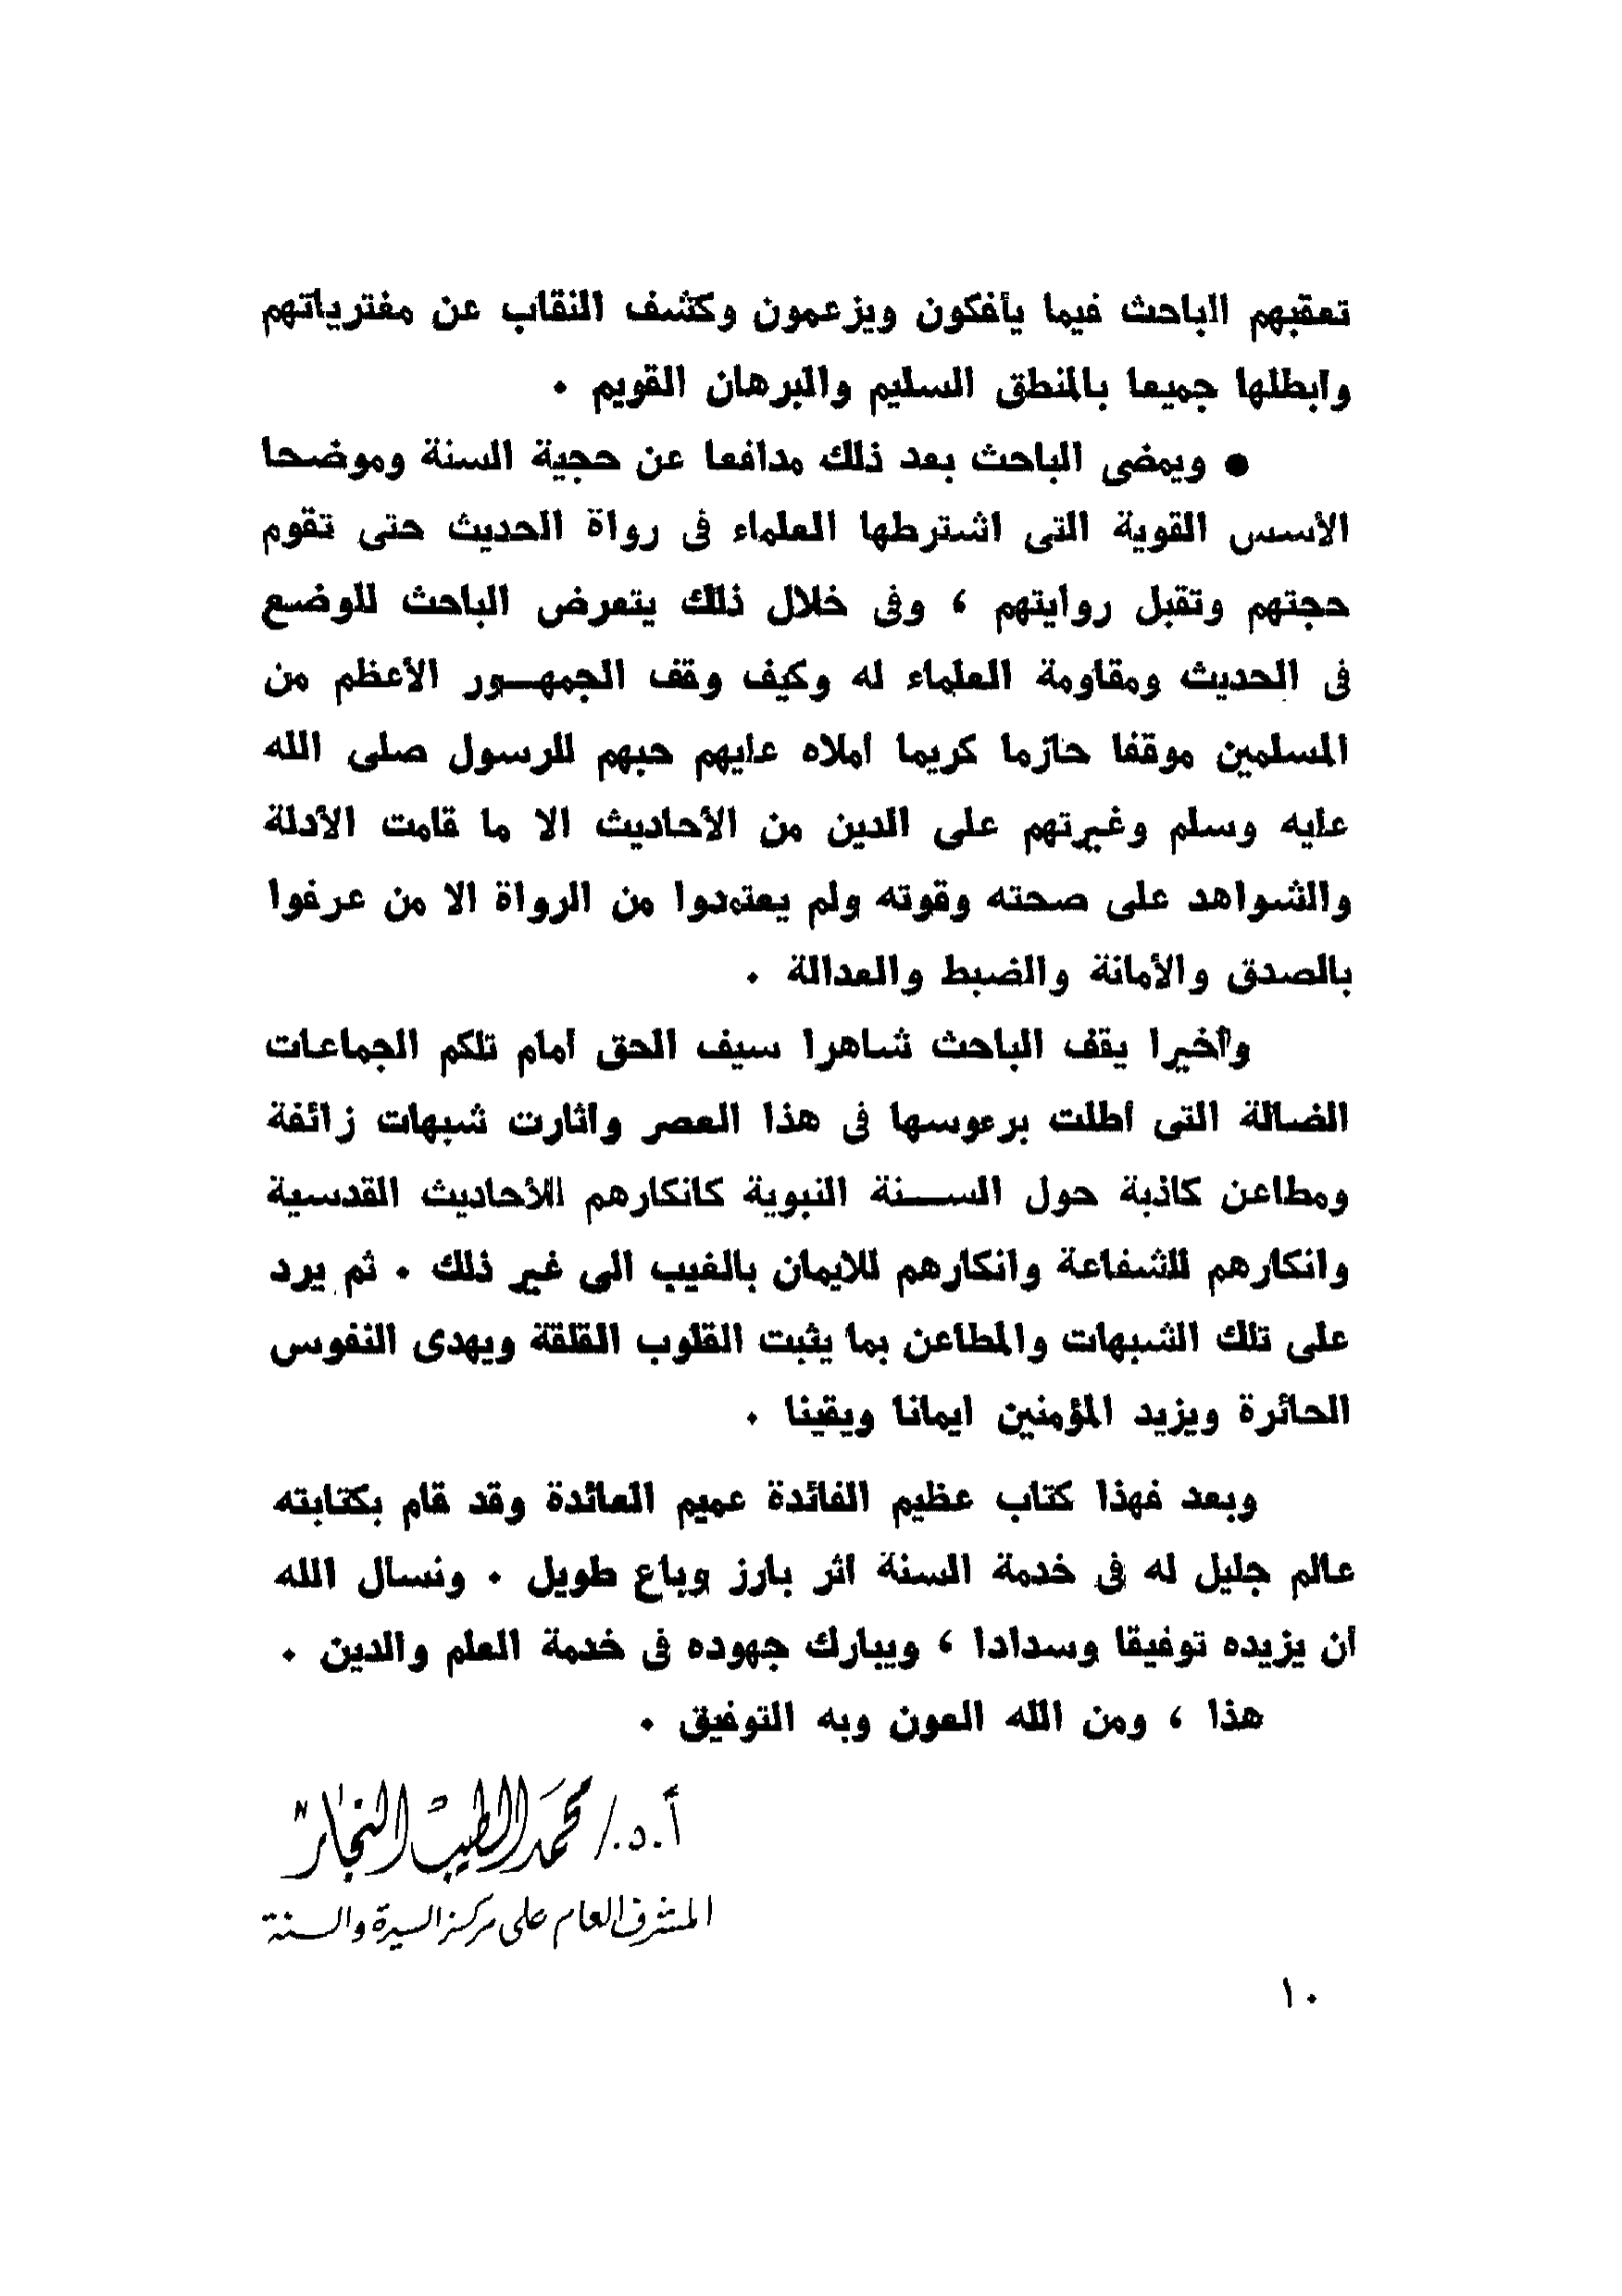 تعقبهم الباحث فيما يأفكون ويزعمون وكشف النقاب عن مفترياتهم
وأبطلها جميعا بالمنطق السليم والبرهان القويم ٠
● ويمضى الباحث بعد ذلك مدافعا عن حجية السنة وموضحا
الأسس القوية التى اشترطها العلماء فى رواة الحديث حتى تقوم
حجتهم وتقبل روايتهم ، وفى خلال ذلك يتعرض الباحث للوضع
فى الحديث ومقاومة العلماء له وكيف وقف الجمهـور الأعظم من
المسلمين موقفا حازما كريما أملاه عليهم حبهم للرسول صلى الله
عليه وسلم وغيرتهم على الدين من الأحاديث الا ما قامت الأدلة
والشواهد على صحته وقوته ولم يعتمدوا من الرواة الا من عرفوا
بالصدق والأمانة والضبط والعدالة ٠
وأخيرا يقف الباحث شاهرا سيف الحق أمام تلكم الجماعات
الضالة التى أطلت برءوسها فى هذا العصر وأثارت شبهات زائفة
ومطاعن كاذبة حول الســنة النبوية كانكارهم للأحاديث القدسية
وانكارهم للشفاعة وانكارهم للايمان بالغيب الى غير ذلك ٠ ثم يرد
على تلك الشبهات والمطاعن بما يثبت القلوب القلقة ويهدى النفوس
الحائرة ويزيد المؤمنين ايمانا ويقينا ٠
وبعد فهذا كتاب عظيم الفائدة عميم العائدة وقد قام بكتابته
عالم جليل له فى خدمة السنة أثر بارز وباع طويل ٠ ونسأل الله
أن يزيده توفيقا وسدادا ، ويبارك جهوده فى خدمة العلم والدين ٠
هذا ، ومن الله العون وبه التوفيق ٠
أ.د./ محمد الطيب النجار
المشرف العام على مركز السيرة والسنة
١٠